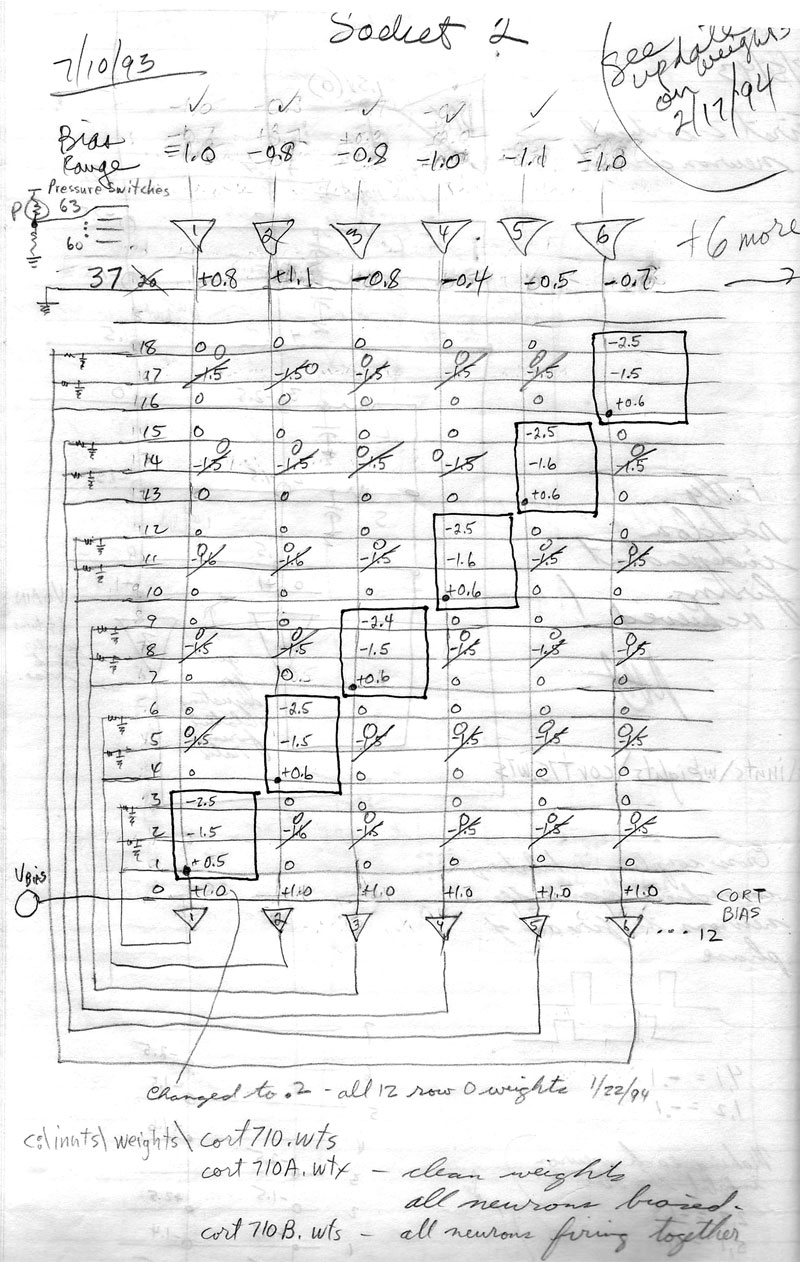 Socket 2
7/10/93
See
update
on weights
2/17/94
Bias
Range
-1.0 -0.8 -0.8 -1.0 -1.1 -1.0
Pressure switches
P 63
60
1 2 3 4 5 6 +6 more
37 +0.8 +1.1 -0.8 -0.4 -0.5 -0.7
18 0 0 0 0 0 -2.5
17 -1.5 0 -1.5 0 -1.5 0 -1.5 0 -1.5 0 -1.5
16 0 0 0 0 0 +0.6
15 0 0 0 0 -2.5 0
14 -1.5 0 -1.5 0 -1.5 0 -1.5 0 -1.6 -1.5 0
13 0 0 0 0 +0.6 0
12 0 0 0 -2.5 0 0
11 -1.6 0 -1.6 0 -1.5 0 -1.6 -1.5 0 -1.5 0
10 0 0 0 +0.6 0 0
9 0 0 -2.4 0 0 0
8 -1.5 0 -1.5 0 -1.5 -1.5 0 -1.8 0 -1.5 0
7 0 0 +0.6 0 0 0
6 0 -2.5 0 0 0 0
5 -1.5 0 -1.5 -1.5 0 -1.5 0 -1.5 0 -1.5 0
4 0 +0.6 0 0 0 0
3 -2.5 0 0 0 0 0
2 -1.5 -1.6 0 -1.5 0 -1.5 0 -1.5 0 -1.5 0
1 +0.5 0 0 0 0 0
VBIAS 0 +1.0 +1.0 +1.0 +1.0 +1.0 +1.0 CORT
BIAS
1 2 3 4 5 6 .... 12
Changed to .2 - all 12 row 0 weights 1/22/94
c:\inuts\weights\cort710.wts
cort710A.wtx - clean weights
all neurons biased.
cort710B.wts - all neurons firing together